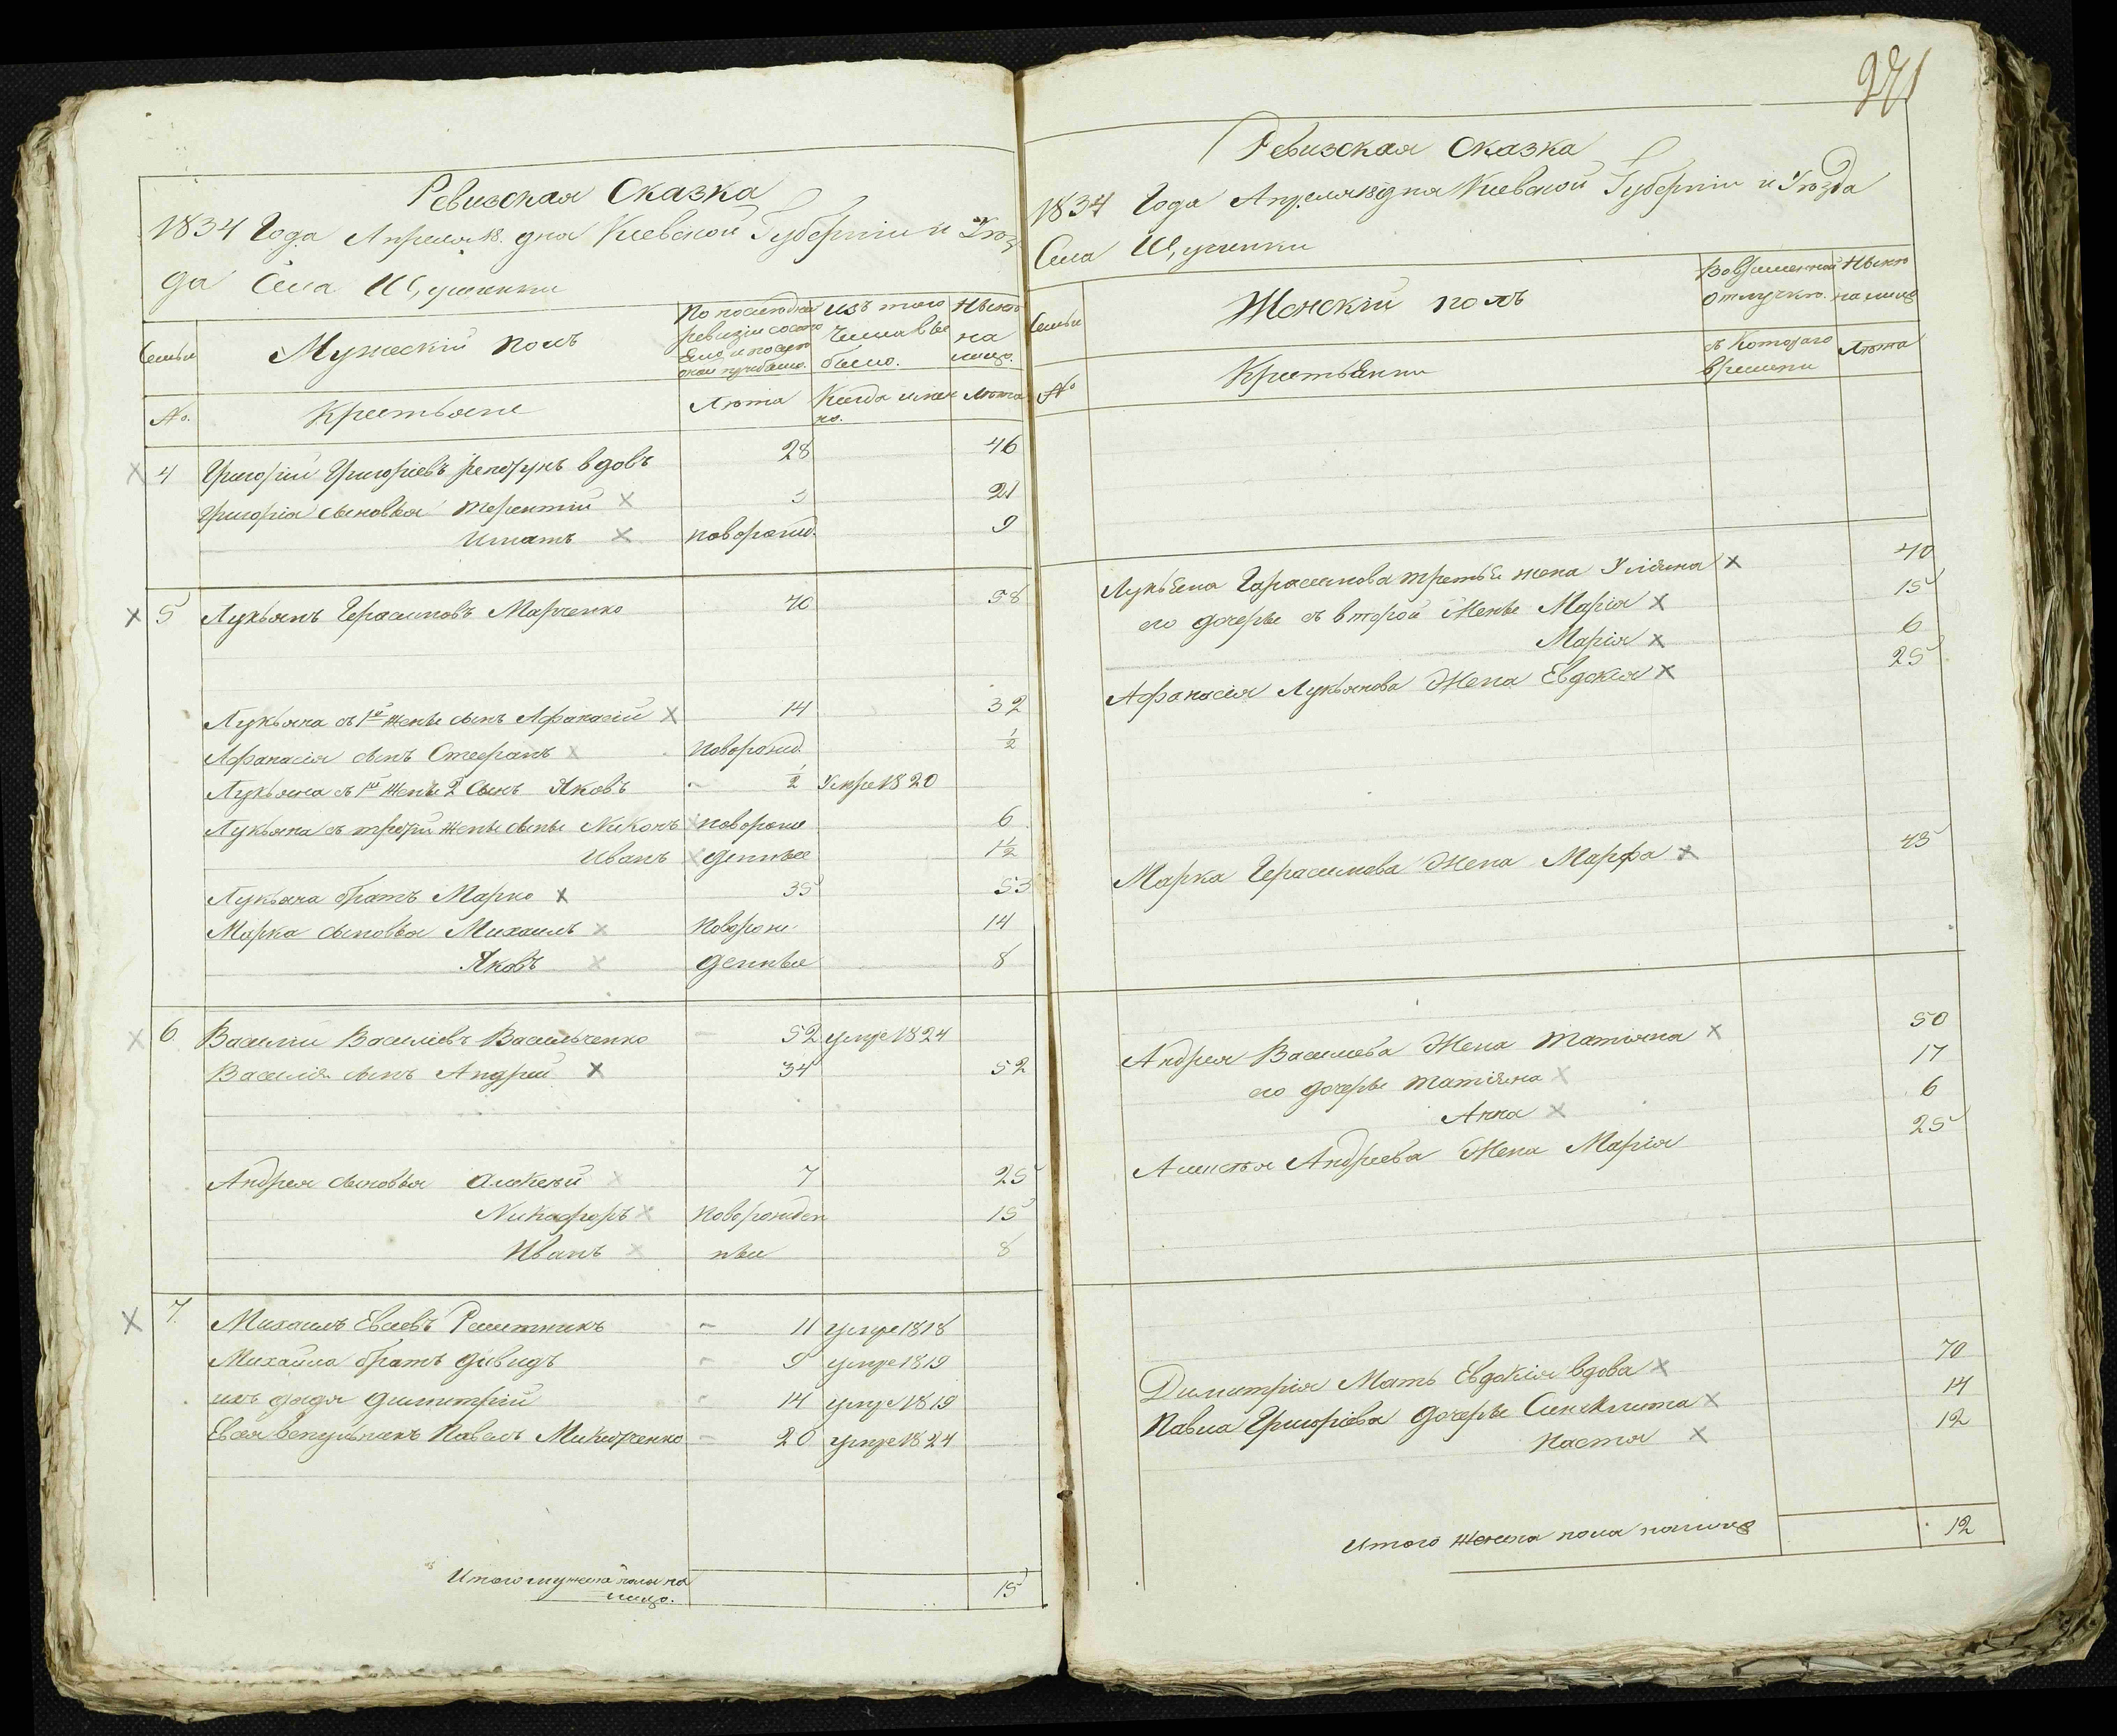 271
Ревизская Сказка
1834 Года Апреля 18. дня Киевской Губерніи и Уѣз
да Села Щученки
Семьи
Мужескій полъ
По последней ревизіи состо
яло и после
оной прибыло.
изъ того
числа вы
было.
Нынѣ
на
лицо.
№.
Крестьяне
Лѣта
Когда имен
но.
Лѣта
4 Григорій Григоріевъ вдовъ 28 46
Григорія сыновья Терентій 3 21
Игнатъ новорожд. 9
5 Лукьянъ Герасимовъ Марченко 40 58
Лукьяна съ 1й жены сынъ Афанасій 14 32
Афанасія сынъ Стефанъ новорожд. ½
Лукьяна съ 1й жены 2 сынъ Яковъ ½ Умре 1820
Лукьяна съ третьи жены сыны Никонъ новорож 6
Иванъ денные 1½
Лукьяна братъ Марко 35 53
Марка сыновья Михаилъ новорож 14
Яковъ денные 8
6 Василій Василіевъ Васильченко 52 умре 1824
Василія сынъ Андрей 34 52
Андрея сыновья Алексѣй 7 25
Никифоръ новорожден 15
Иванъ ные 8
7. Михаилъ Евсевъ Решетникъ 11 умре 1818
Михайла братъ Дивидъ 9 умре 1819
ихъ дядя Димитрій 14 умре 1819
Евсея Павелъ 20 умре 1824
Итого мужеска пола на
лицо. 15
Ревизская Сказка
1834 Года Апреля 18 дня Киевской Губерніи и Уѣзда
Села Щученки
Семьи
Женскій полъ
Во временной
отлучкѣ.
Нынѣ
на лицо
№
Крестьянки
съ котораго
времени
Лѣта
Лукьяна Гарасимова третья жена Уліяна 40
его дочеры съ второй жены Марія 15
Марія 6
Афанасія Лукьянова Жена Евдокія 25
Марка Герасимова Жена Марфа 45
Андрея Василиева Жена Татіяна 50
его дочеры Татіяна 17
Анна 6
Алексѣя Андреева Жена Марія 25
Димитрія Мать Евдокія вдова 70
Павла Григоріева дочеры Синклита 14
Настя 12
Итого женска пола налицо 12